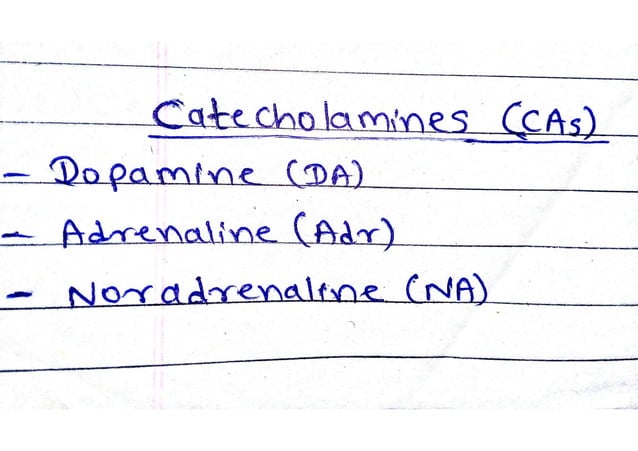 Catecholamines (CAs)
- Dopamine (DA)
- Adrenaline (Adr)
- Noradrenaline (NA)